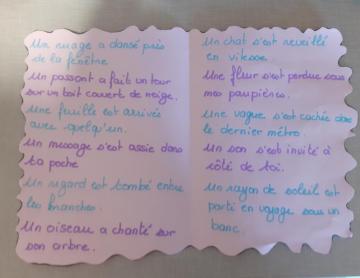 Un nuage a dansé près
de la fenêtre
Un passant a fait un tour
sur un toit couvert de neige.
Une feuille est arrivée
avec quelqu'un.
Un message s'est assis dans
ta poche
Un regard est tombé entre
les branches.
Un oiseau a chanté sur
son arbre.
Un chat s'est réveillé
en vitesse.
Une fleur s'est perdue sous
mes paupières.
Une vague s'est cachée dans
le dernier métro.
Un son s'est invité à
côté de toi.
Un rayon de soleil est
parti en voyage sous un
banc.